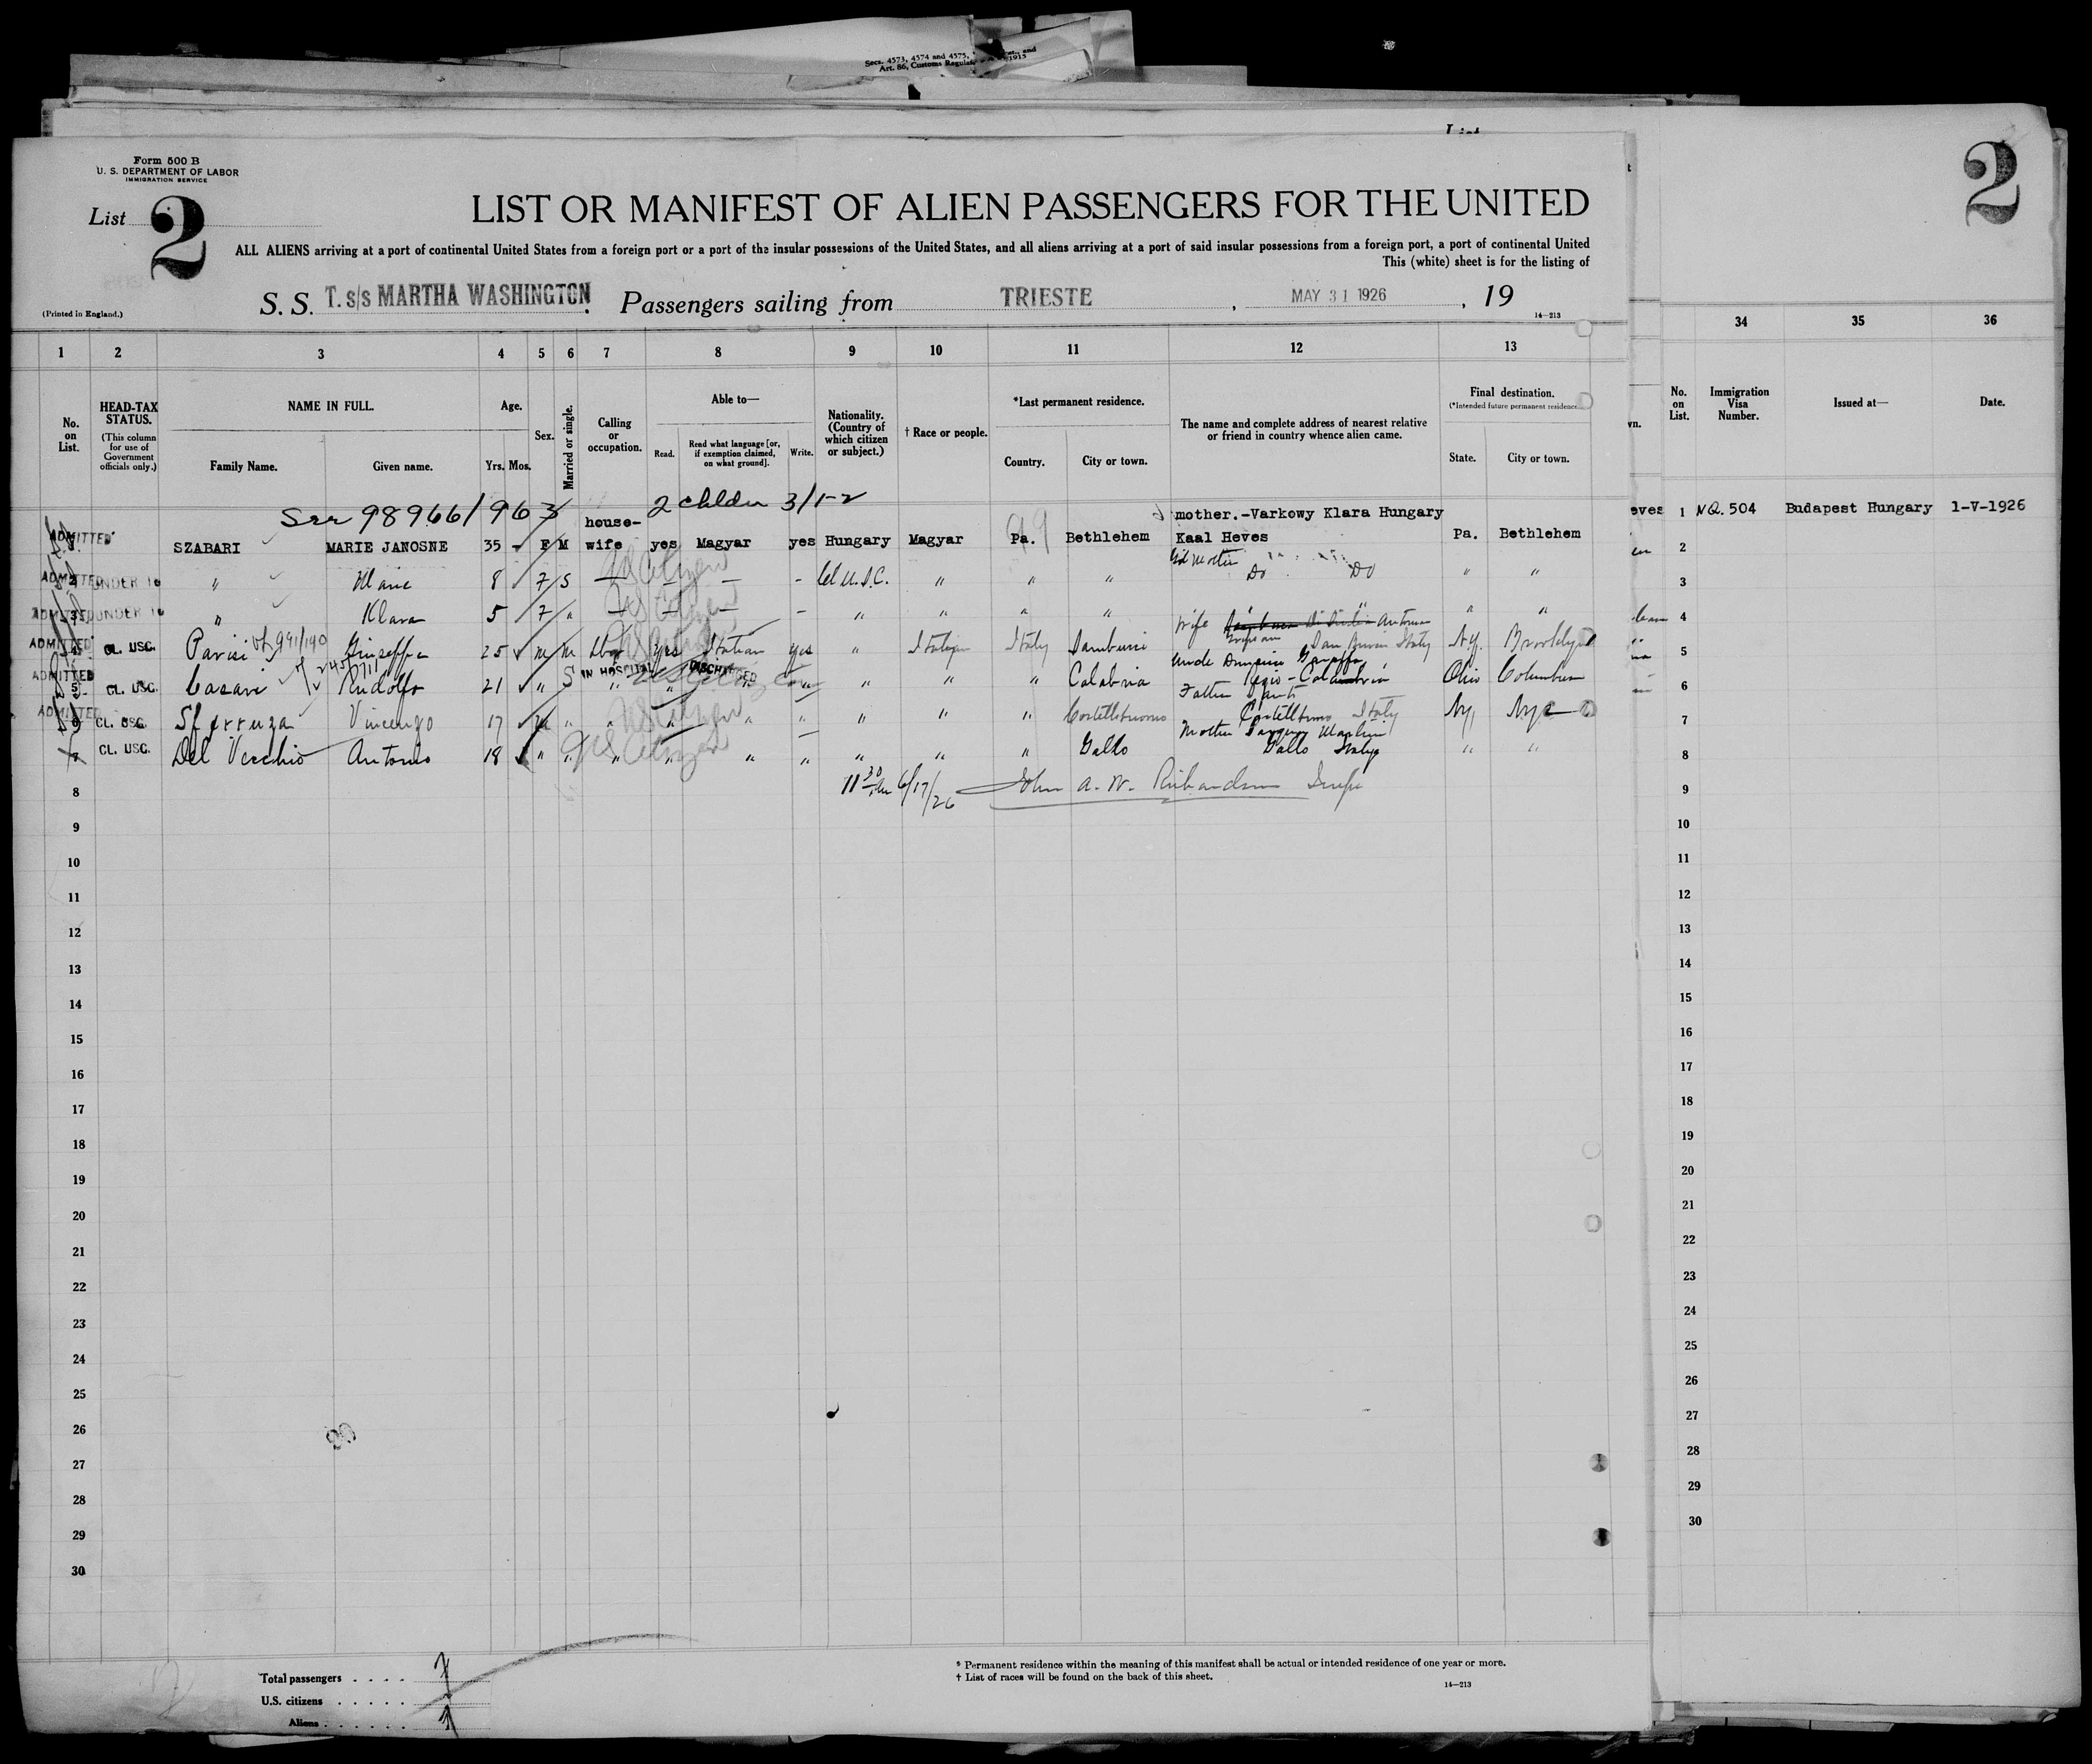 Secs. 4573, 4574 and 4575,
Art. 86, Customs Regulat 1915
Form 500 B
U. S. DEPARTMENT OF LABOR
IMMIGRATION SERVICE
List 2
2
LIST OR MANIFEST OF ALIEN PASSENGERS FOR THE UNITED
ALL ALIENS arriving at a port of continental United States from a foreign port or a port of the insular possessions of the United States, and all aliens arriving at a port of said insular possessions from a foreign port, a port of continental United
This (white) sheet is for the listing of
(Printed in England.)
S. S. T. s/s MARTHA WASHINGTON. Passengers sailing from TRIESTE, MAY 31 1926, 19
14—213
1 2 3 4 5 6 7 8 9 10 11 12 13 34 35 36
No. on List.
HEAD-TAX STATUS.
(This column for use of Government officials only.)
NAME IN FULL.
Family Name. Given name.
Age.
Yrs. Mos.
Sex.
Married or single.
Calling or occupation.
Able to—
Read. Read what language [or, if exemption claimed, on what ground]. Write.
Nationality. (Country of which citizen or subject.)
† Race or people.
*Last permanent residence.
Country. City or town.
The name and complete address of nearest relative or friend in country whence alien came.
Final destination.
(*Intended future permanent residence.)
State. City or town.
No. on List.
Immigration Visa Number.
Issued at—
Date.
98966/963 2 3/1-2
ADMITTED SZABARI MARIE JANOSNE 35 F M house-wife yes Magyar yes Hungary Magyar Pa. Bethlehem mother.-Varkowy Klara Hungary Kaal Heves Pa. Bethlehem
1 NQ. 504 Budapest Hungary 1-V-1926
ADMITTED UNDER 16 " Marie 8 F S — US Citizen — — Cl U.S.C. " " " Gd mother Do Do " "
ADMITTED UNDER 16 " Klara 5 F " — US Citizen — — " " " " " "
ADMITTED CL. USC. Parisi 991/190 Giuseppe 25 M M Lbor Yes Italian yes " Italian Italy wife Antonia Italy N.Y. Brooklyn
ADMITTED 5 CL. USC. Casari Rudolfo 21 " S IN HOSPITAL " DISCHARGED " " " " Calabria uncle Ohio Columbus
ADMITTED CL. USC. Sferruza Vincenzo 17 M " " US Citizen " " " " " Father Italy Ny, Nyc
CL. USC. Del Vecchio Antonio 18 " " " US Citizen " " " " " Gallo mother Gallo Italy " "
11 30 AM 6/17/26 John A. W. Richardson Insp
8
9
10
11
12
13
14
15
16
17
18
19
20
21
22
23
24
25
26
27
28
29
30
2
3
4
5
6
7
8
9
10
11
12
13
14
15
16
17
18
19
20
21
22
23
24
25
26
27
28
29
30
Total passengers . . . . 7
U.S. citizens . . . . .
Aliens . . . . . . 1
* Permanent residence within the meaning of this manifest shall be actual or intended residence of one year or more.
† List of races will be found on the back of this sheet.
14—213